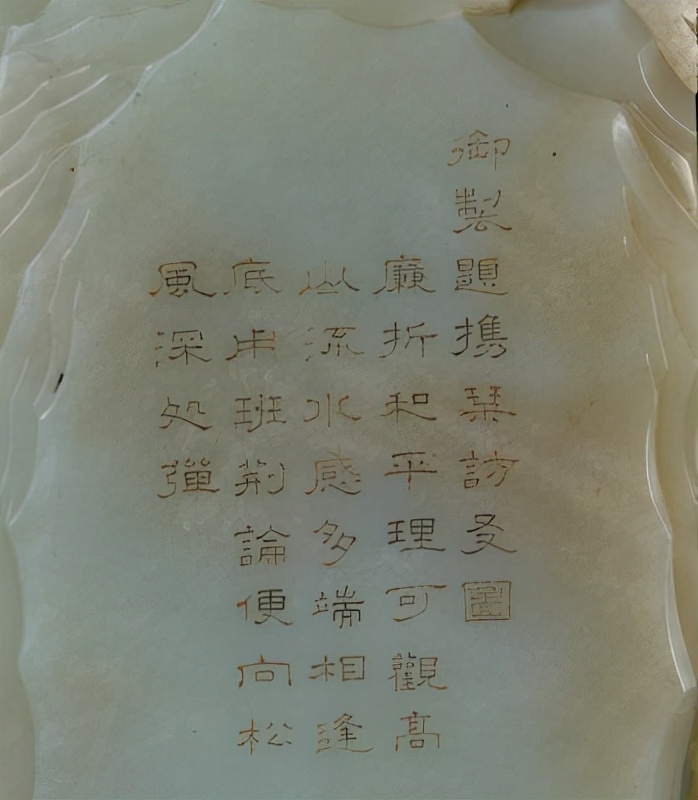 御製題携琹訪友圖
廉折和平理可觀高
山流水感多端相逢
底用班荆論便向松
風深処彈